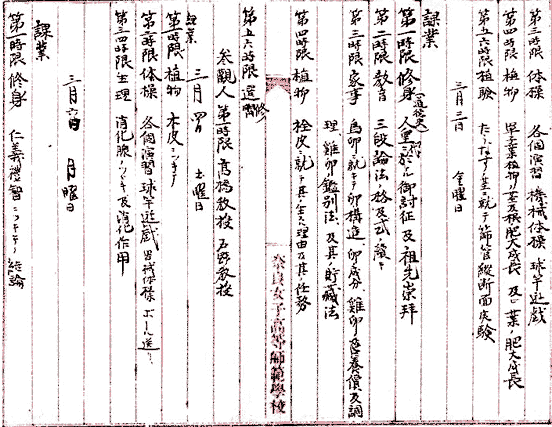 第三時限 体操 各個演習 機械体操 球竿遊戯
第四時限 植物 単子葉植物ノ茎及根肥大成長 及ビ葉ノ肥大成長
第五六時限 植験 たうなすノ茎ニ就テ篩管縦断面実験
三月三日 金曜日
課業
第一時限 修身 人皇ニ於ル御討征及祖先崇拝
第二時限 教育 三段論法ノ格及式ノ
第三時限 家事 鳥卵ニ就キテ卵ノ構造 卵ノ成分 雞卵ノ営養價及調
理 雞卵鑑別法 及其ノ貯藏法
第四時限 植物 栓皮ニ就テ其ノ生ズル理由及其ノ任務
第五六時限 選修
参観人 第一時限 高橋教授
三月四日 土曜日
課業
第一時限 植物 木皮ニツキテ
第二時限 体操 各個演習 球竿遊戯 器械体操
第三四時限 生理 消化腺ニツキ及消化作用
三月六日 月曜日
課業
第一時限 修身 仁義禮智ニツキテノ結論
奈良女子高等師範學校